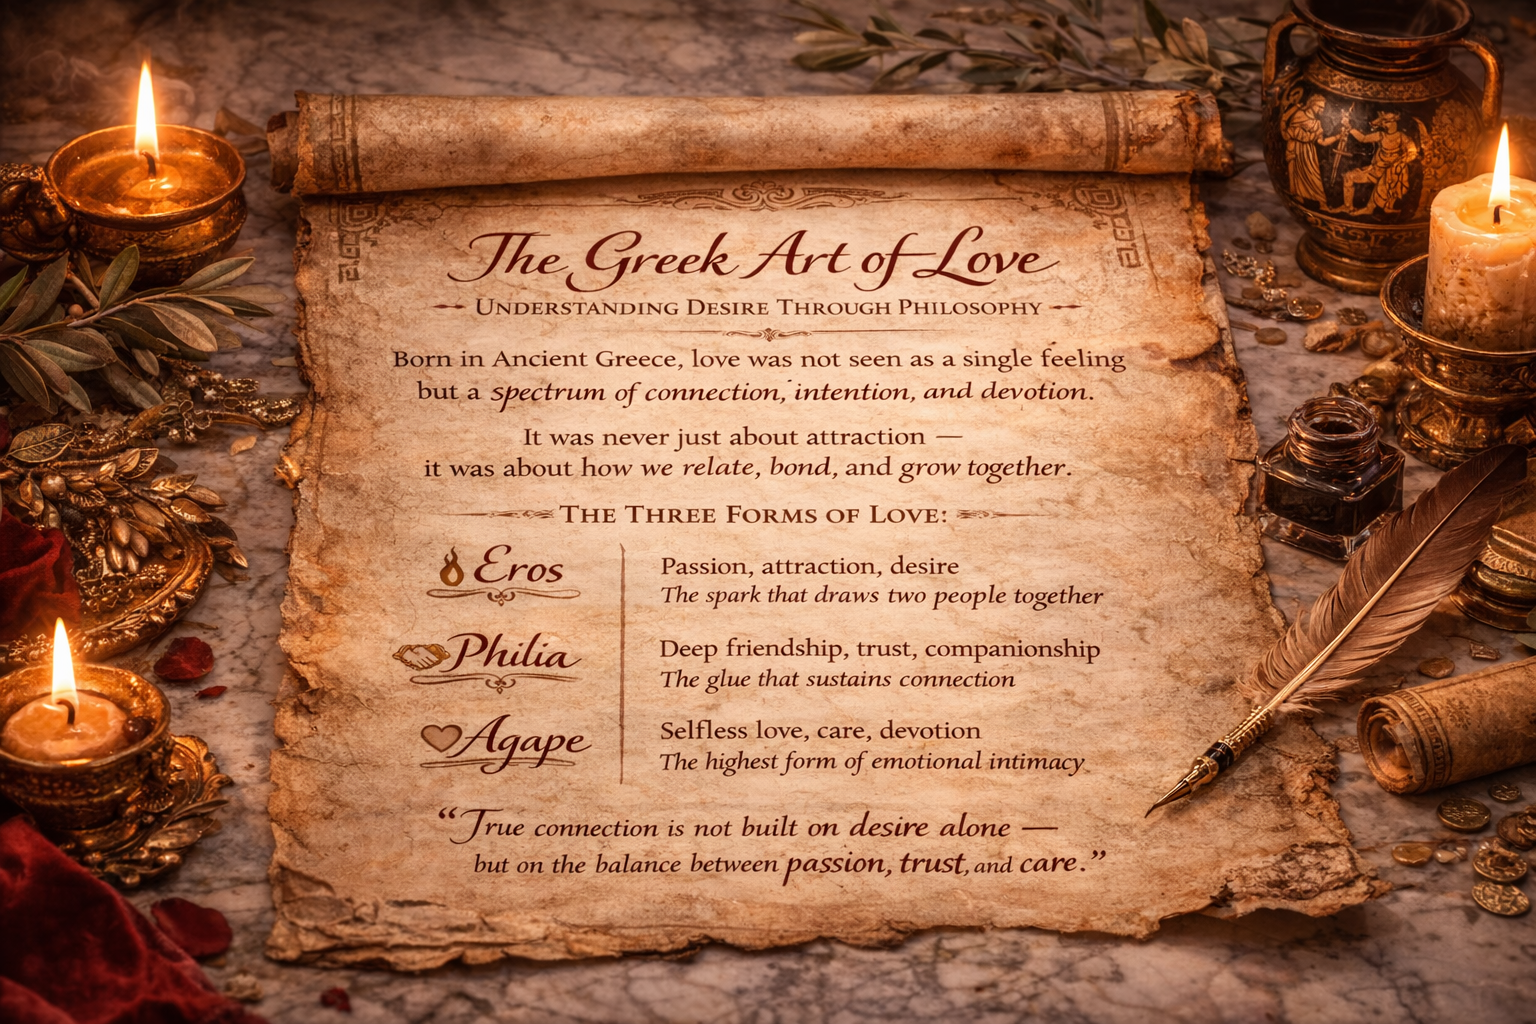 The Greek Art of Love
Understanding Desire Through Philosophy
Born in Ancient Greece, love was not seen as a single feeling
but a spectrum of connection, intention, and devotion.
It was never just about attraction —
it was about how we relate, bond, and grow together.
The Three Forms of Love:
Eros
Passion, attraction, desire
The spark that draws two people together
Philia
Deep friendship, trust, companionship
The glue that sustains connection
Agape
Selfless love, care, devotion
The highest form of emotional intimacy
“True connection is not built on desire alone —
but on the balance between passion, trust, and care.”